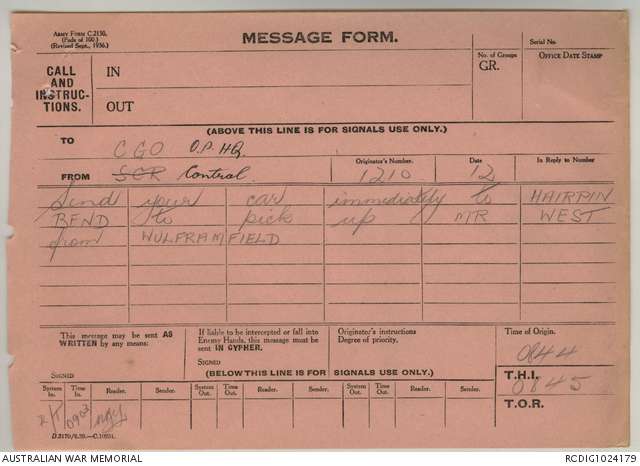 Army Form C.2130.
(Pads of 100.)
(Revised Sept., 1936.)
MESSAGE FORM.
Serial No.
No. of Groups
GR.
OFFICE DATE STAMP
CALL
AND
INSTRUC-
TIONS.
IN
OUT
(ABOVE THIS LINE IS FOR SIGNALS USE ONLY.)
TO
CGO O.P. HQ
FROM SCR Control.
Originator's Number.
1210
Date
12
In Reply to Number.
Send your car immediately to HAIRPIN
BEND to pick up MR WEST
from WULFRAM FIELD
This message may be sent AS
WRITTEN by any means:
SIGNED
If liable to be intercepted or fall into
Enemy Hands, this message must be
sent IN CYPHER.
SIGNED
Originator's instructions
Degree of priority.
Time of Origin.
0844
(BELOW THIS LINE IS FOR SIGNALS USE ONLY.)
T.H.I.
0845
T.O.R.
System In. Time In. Reader. Sender. System Out. Time Out. Reader. Sender. System Out. Time Out. Reader. Sender.
R/T 0903
AUSTRALIAN WAR MEMORIAL
RCDIG1024179